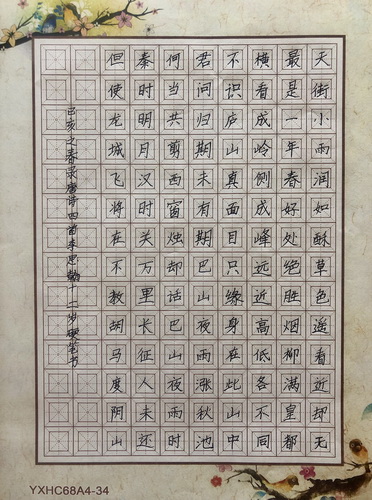 天街小雨润如酥草色遥看近却无
最是一年春好处绝胜烟柳满皇都
横看成岭侧成峰远近高低各不同
不识庐山真面目只缘身在此山中
君问归期未有期巴山夜雨涨秋池
何当共剪西窗烛却话巴山夜雨时
秦时明月汉时关万里长征人未还
但使龙城飞将在不教胡马度阴山
己亥之春录唐诗四首李思十一岁硬笔书
YXHC68A4-34